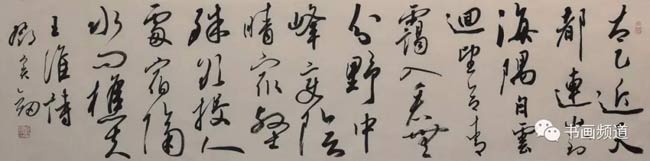 太乙近天
都連山到
海隅白雲
迴望合青
靄入看無
分野中
峰變陰
晴眾壑
殊欲投人
處宿隔
水問樵夫
王維詩
书画频道